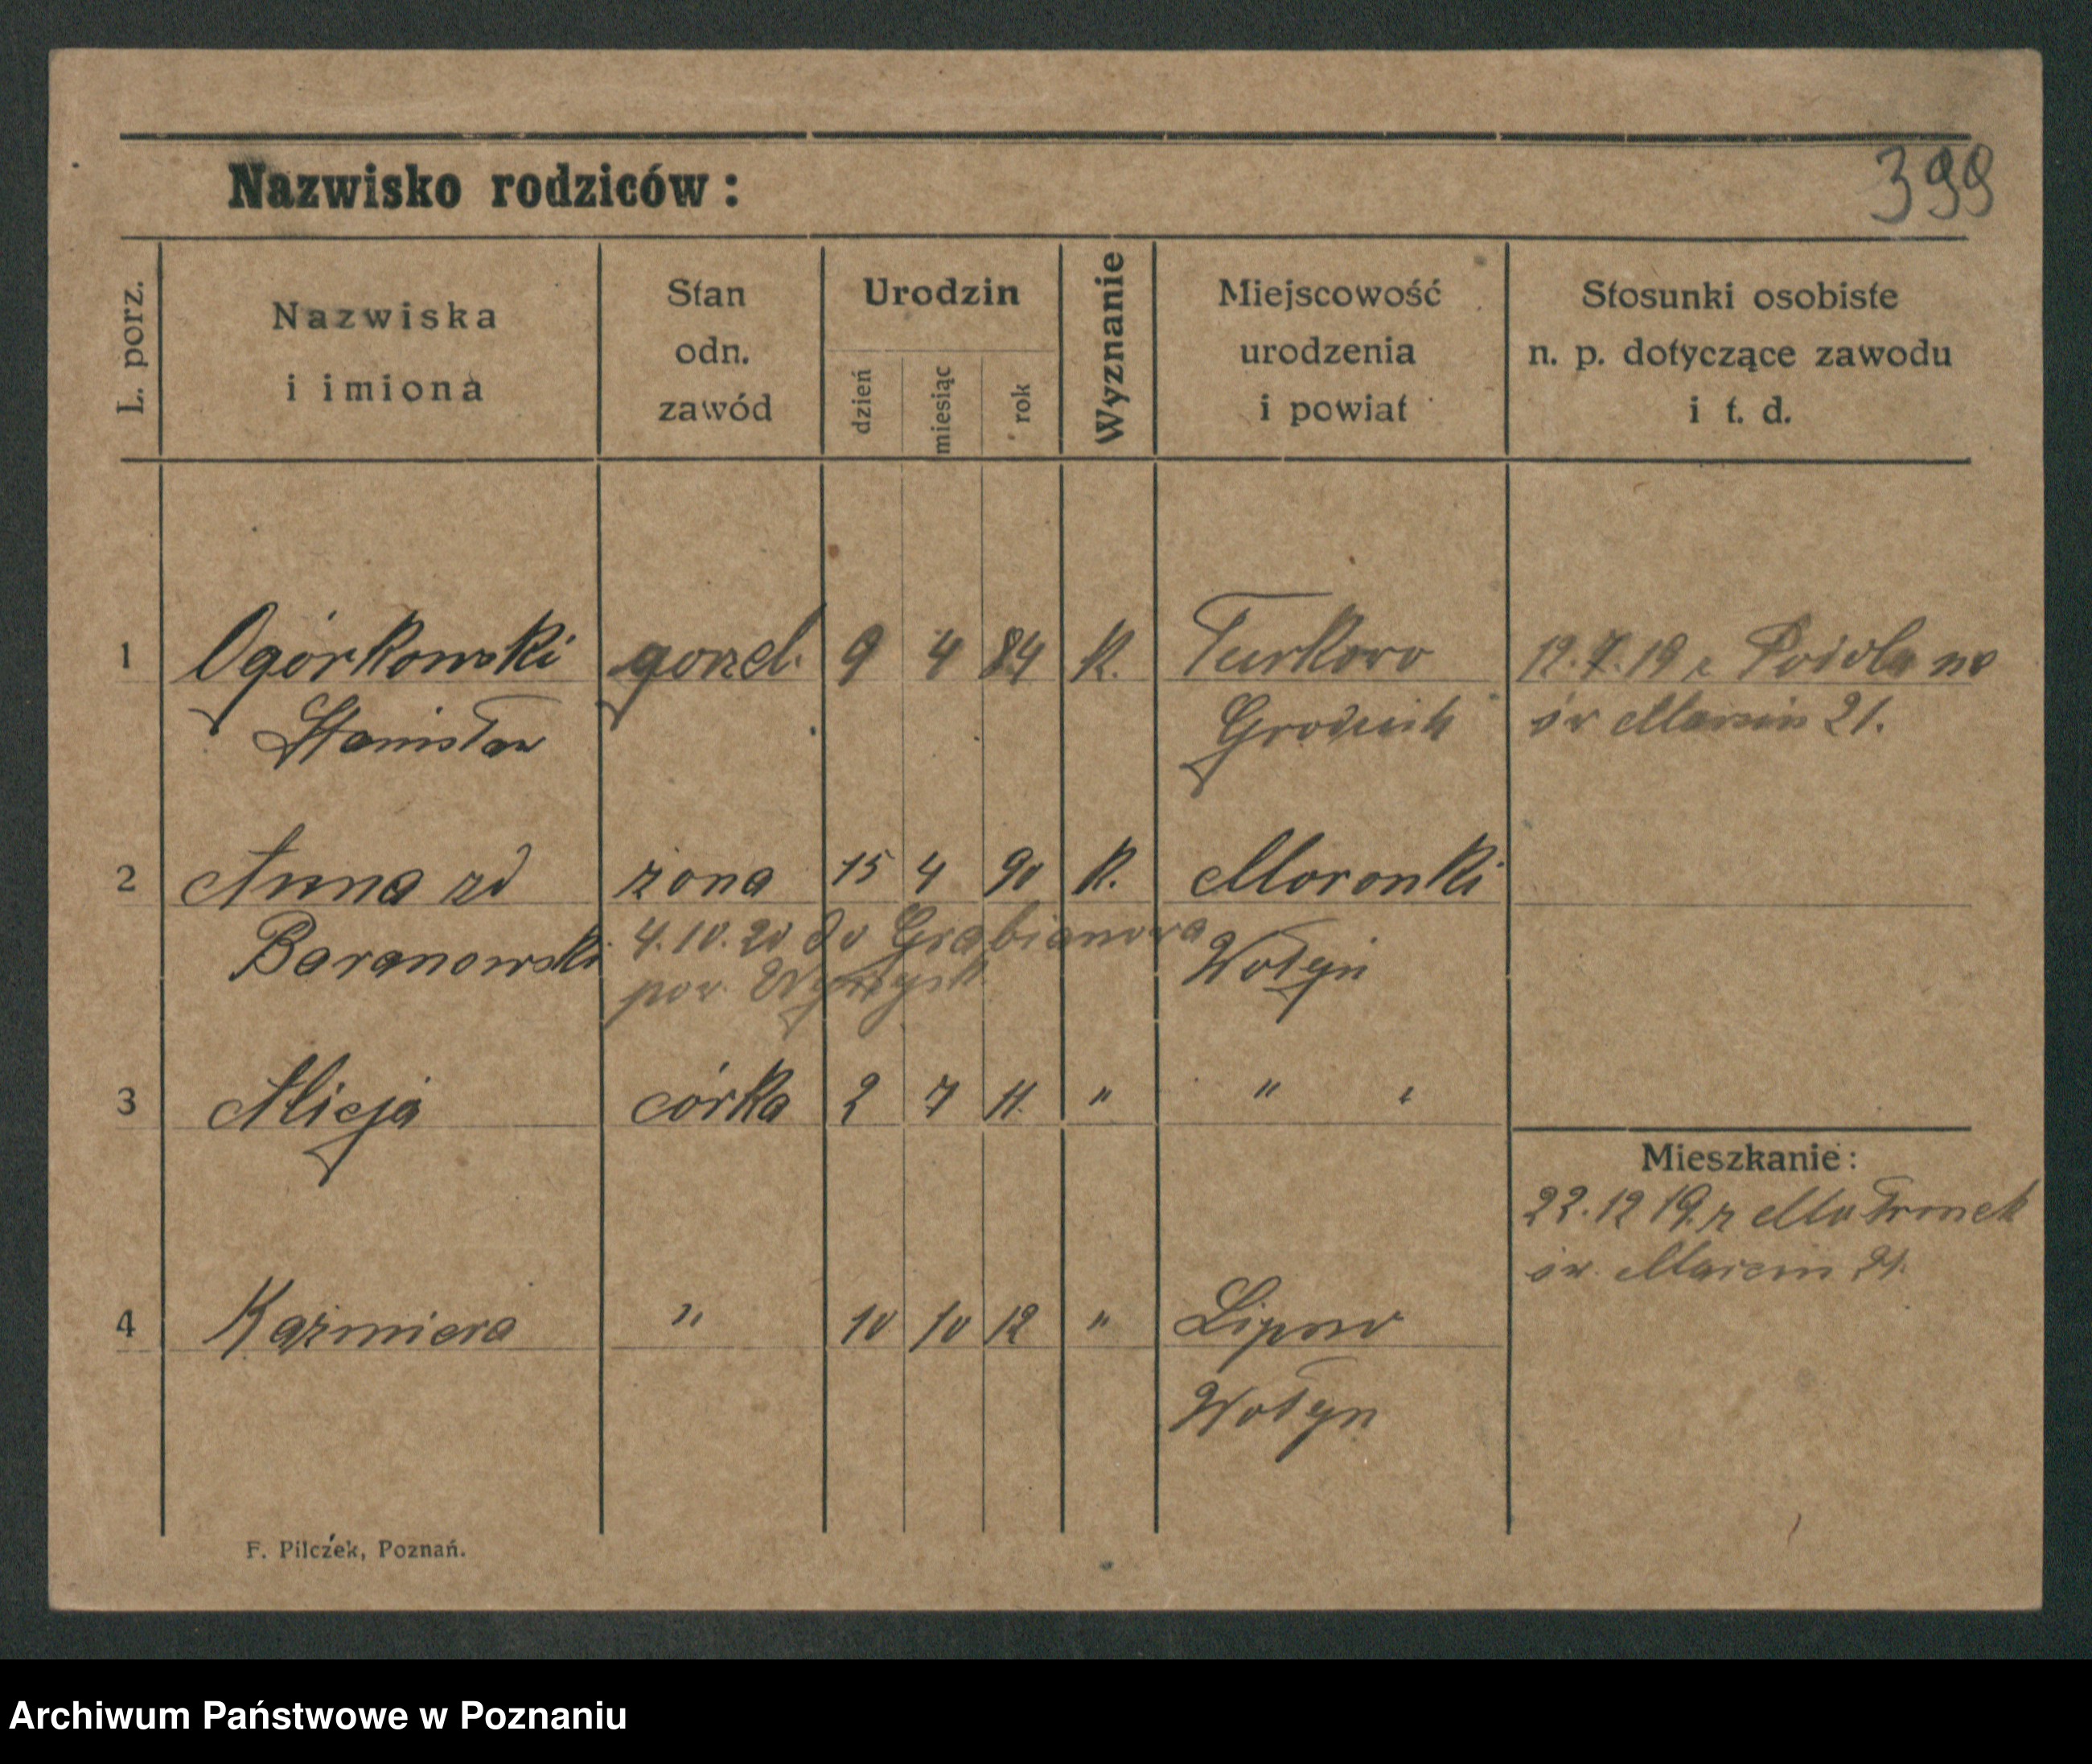 399
Nazwisko rodziców:
L. porz.
Nazwiska
i imiona
Stan
odn.
zawód
Urodzin
dzień
miesiąc
rok
Wyznanie
Miejscowość
urodzenia
i powiat
Stosunki osobiste
n. p. dotyczące zawodu
i t. d.
1 Ogórkowski gorzel. 9 4 84 K. Turkowo 12.7.19 z
Stanisław św Marcin 21.
2 Anna zd żona 15 4 90 K. Moronki
Baranowski 4.10.20 do Grabianowa Wołyń
pow. Wyrzysk
3 Alicja córka 2 7 11. " " "
Mieszkanie:
22.12 19. z
św. Marcin 21.
4 Kaźmiera " 10 10 12 " Lipno
Wołyn
F. Pilczek, Poznań.
Archiwum Państwowe w Poznaniu